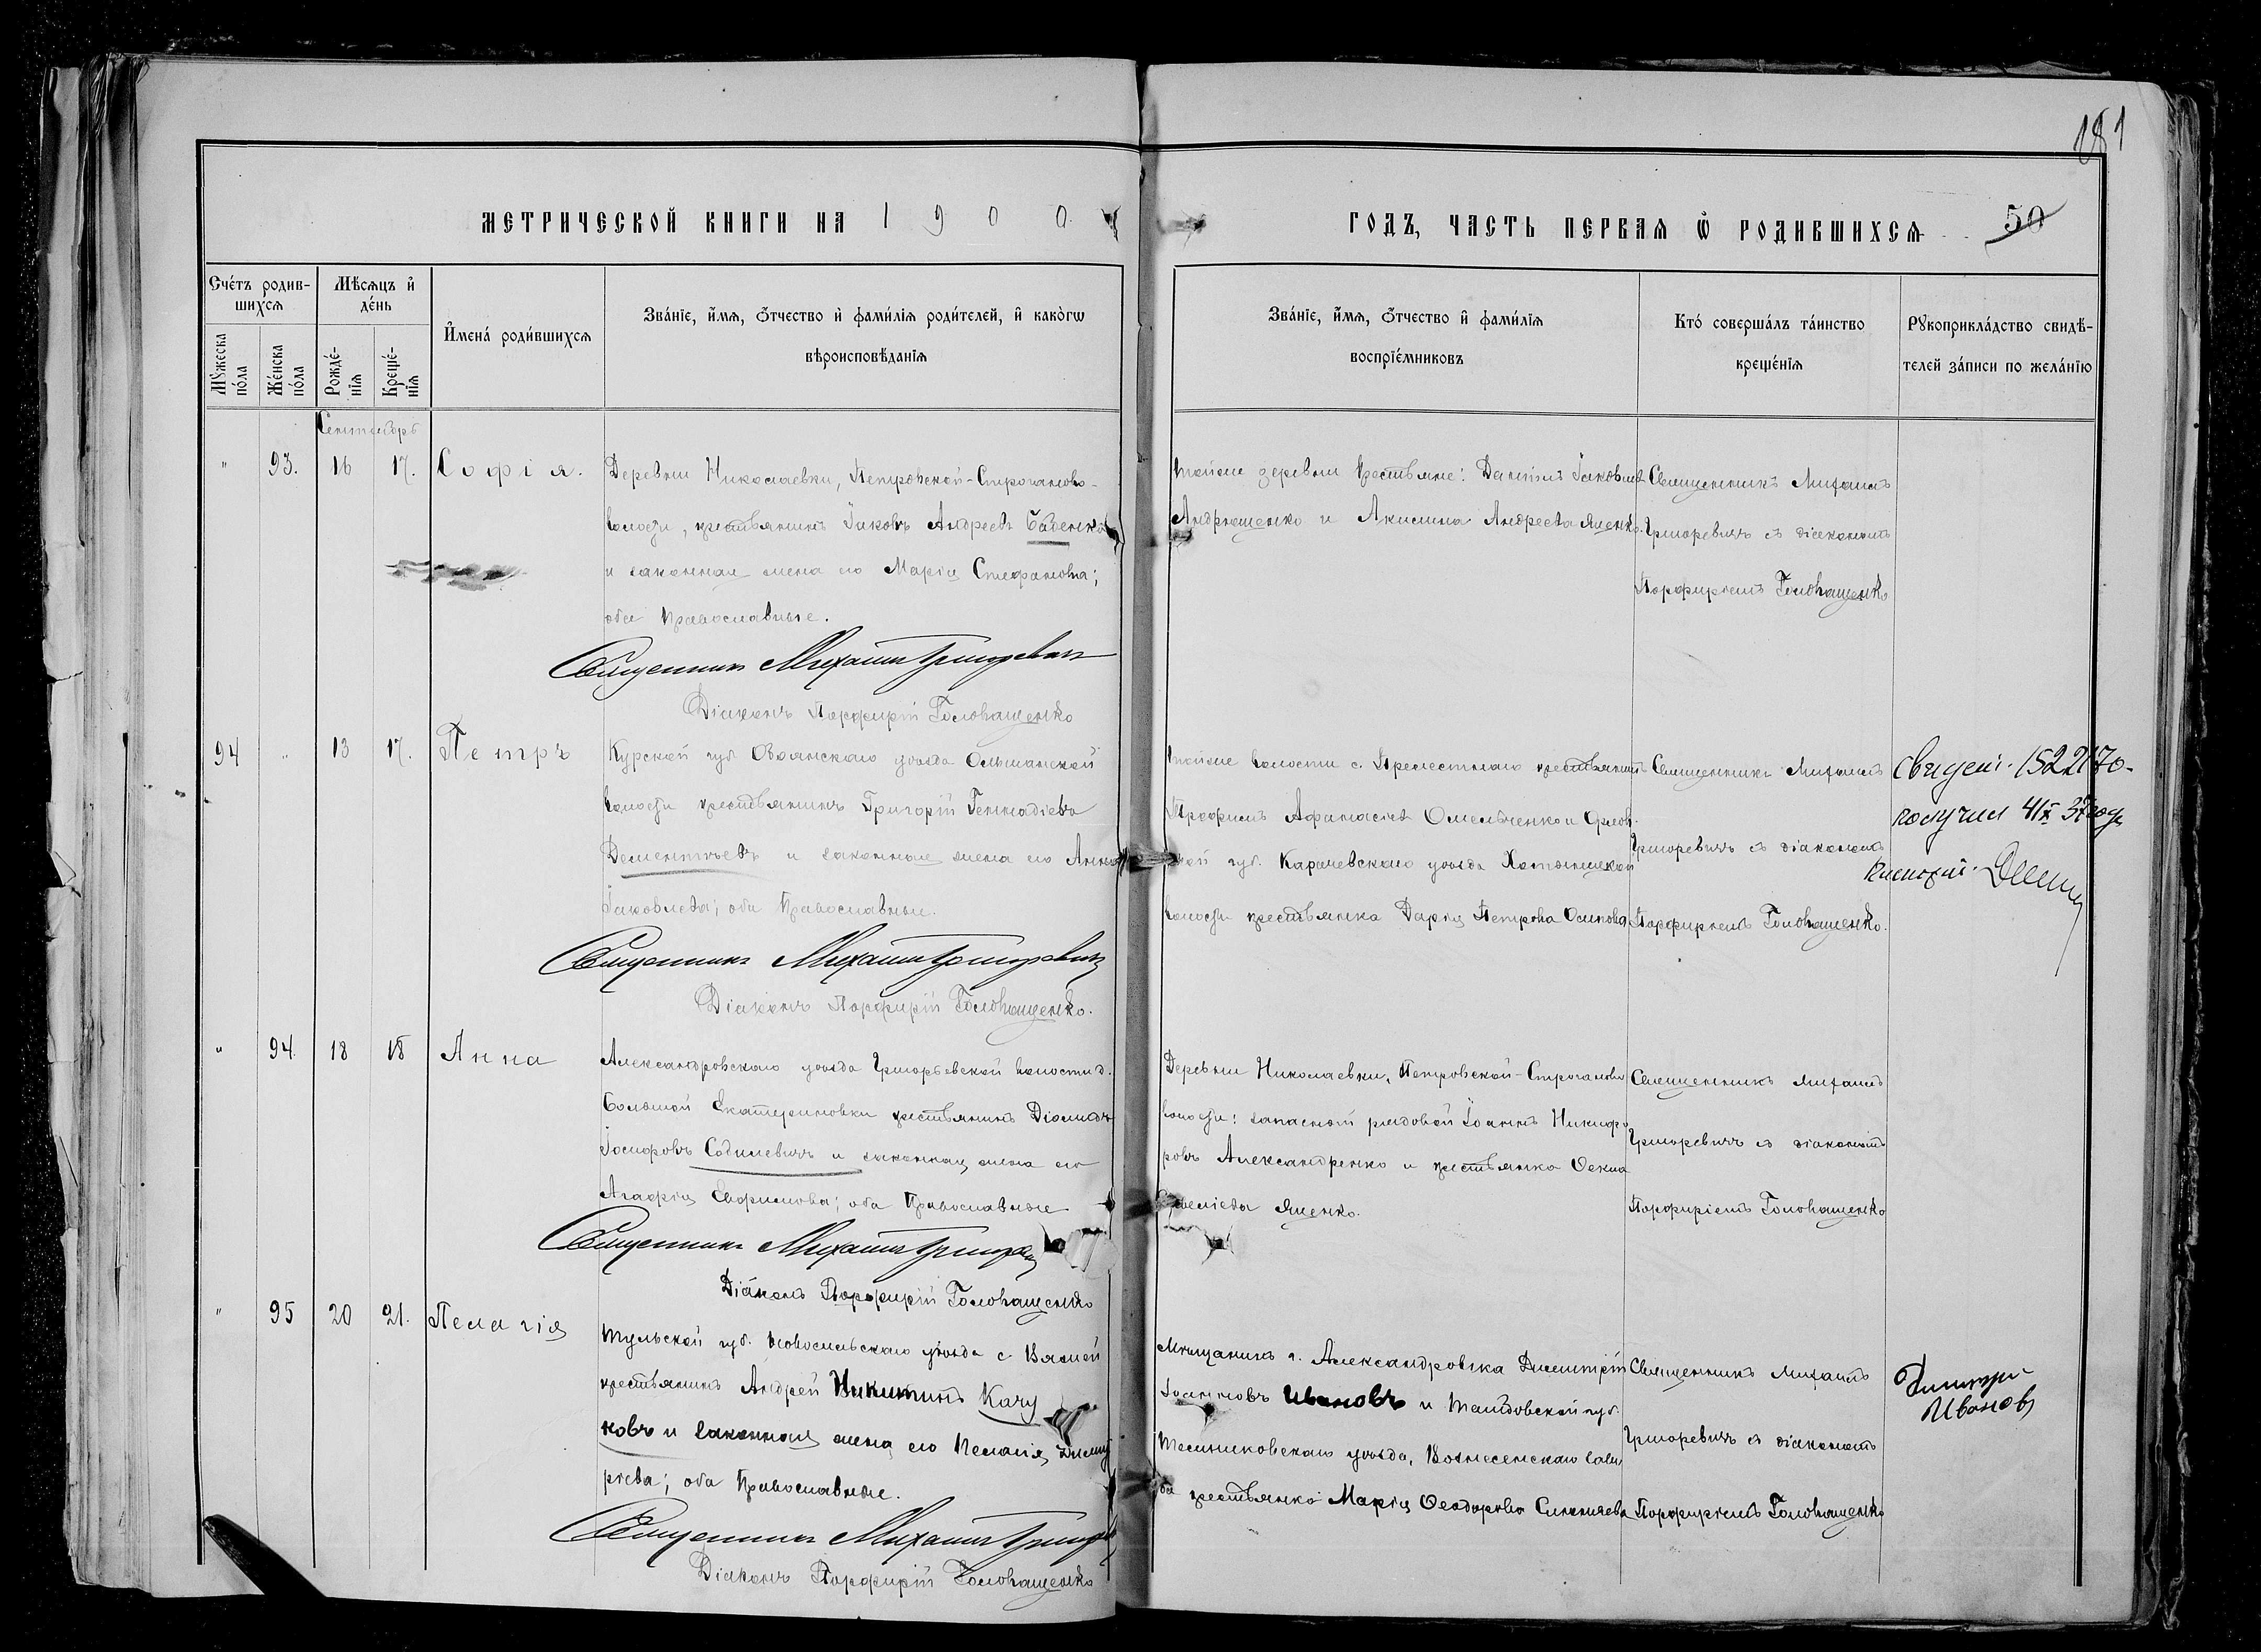 181
МЕТРИЧЕСКОЙ КНИГИ НА 1900
ГОДЪ, ЧАСТЬ ПЕРВАЯ Ѿ РОДИВШИХСЯ
50
Счéтъ родив-
шихся
Мѣсяцъ и҆
дéнь
Мꙋжеска
пóла
Жéнска
пóла
Рождé-
нїя
Крещé-
нїя
И҆менá роди́вшихся
Звáнїе, и҆́мя, ѻ҆́тчество и҆ фами́лїя роди́телей, и҆ какóгѡ
вѣроисповѣ́данїя
Звáнїе, и҆́мя, ѻ҆́тчество и҆ фами́лїя
воспрїéмниковъ
Ктó совершáлъ тáинство
крещéнїя
Рꙋкоприклáдство свидѣ́-
телей зáписи по желáнїю
Сентябрь
"
93.
16
17.
Софія.
Деревни Николаевки, Петровской-Строгановс-
волости, крестьянинъ Іаковъ Андреевъ Баденко
и законная жена его Марія Стефановна;
оба православные.
Священникъ Михаилъ Григоревичъ
Діаконъ Порфирій Головащенко
тойже деревни крестьяне: Даніилъ Іаковлевъ
Андрющенко и Акилина Андреева Яценко.
Священникъ Михаилъ
Григоревичъ съ діакономъ
Порфиріемъ Головащенко
94
"
13
17.
Петръ
Курской губ. Обоянскаго уѣзда Ольшанской
волости крестьянинъ Григорій Геннадіевъ
Дементьевъ и законная жена его Анна
Іаковлева; оба православные.
Священникъ Михаилъ Григоревичъ
Діаконъ Порфирій Головащенко.
тойже волости с. Прелестнаго крестьянинъ
Трофимъ Афанасіевъ Омельченко и Орлов-
ской губ. Карачевскаго уѣзда Хотынецкой
волости крестьянка Дарія Петрова Осипова
Священникъ Михаилъ
Григоревичъ съ діакономъ
Порфиріемъ Головащенко.
Свидет. 1522170-
получил 4/IX 37 года
"
94.
18
18
Анна
Александровскаго уѣзда Григорьевской волости д.
Большой Екатериновки крестьянинъ Діомидъ
Содилевичъ и законная жена его
Агафія Евфимова; оба православные
Священникъ Михаилъ
Діаконъ Порфирій Головащенко
Деревни Николаевки, Петровской-Строганово
волости: запасной рядовой Іоаннъ Никифо
ровъ Александренко и крестьянка Ѳекла
Яценко.
Священникъ Михаилъ
Григоревичъ съ діакономъ
Порфиріемъ Головащенко
"
95
20
21.
Пелагія
Тульской губ. Новосильскаго уѣзда с. Вяжей
крестьянинъ Андрей Никитинъ Качу
ковъ и законная жена его Пелагія Димит
ріева; оба православные.
Священникъ Михаилъ
Діаконъ Порфирій Головащенко
Мѣщанинъ г. Александровска Димитрій
Іоанновъ Ивановъ и Тамбовской губ.
Темниковскаго уѣзда, Вознесенскаго заво
да крестьянка Марія Ѳеодорова Синичева
Священникъ Михаилъ
Григоревичъ съ діакономъ
Порфиріемъ Головащенко
Димитрій
Ивановъ